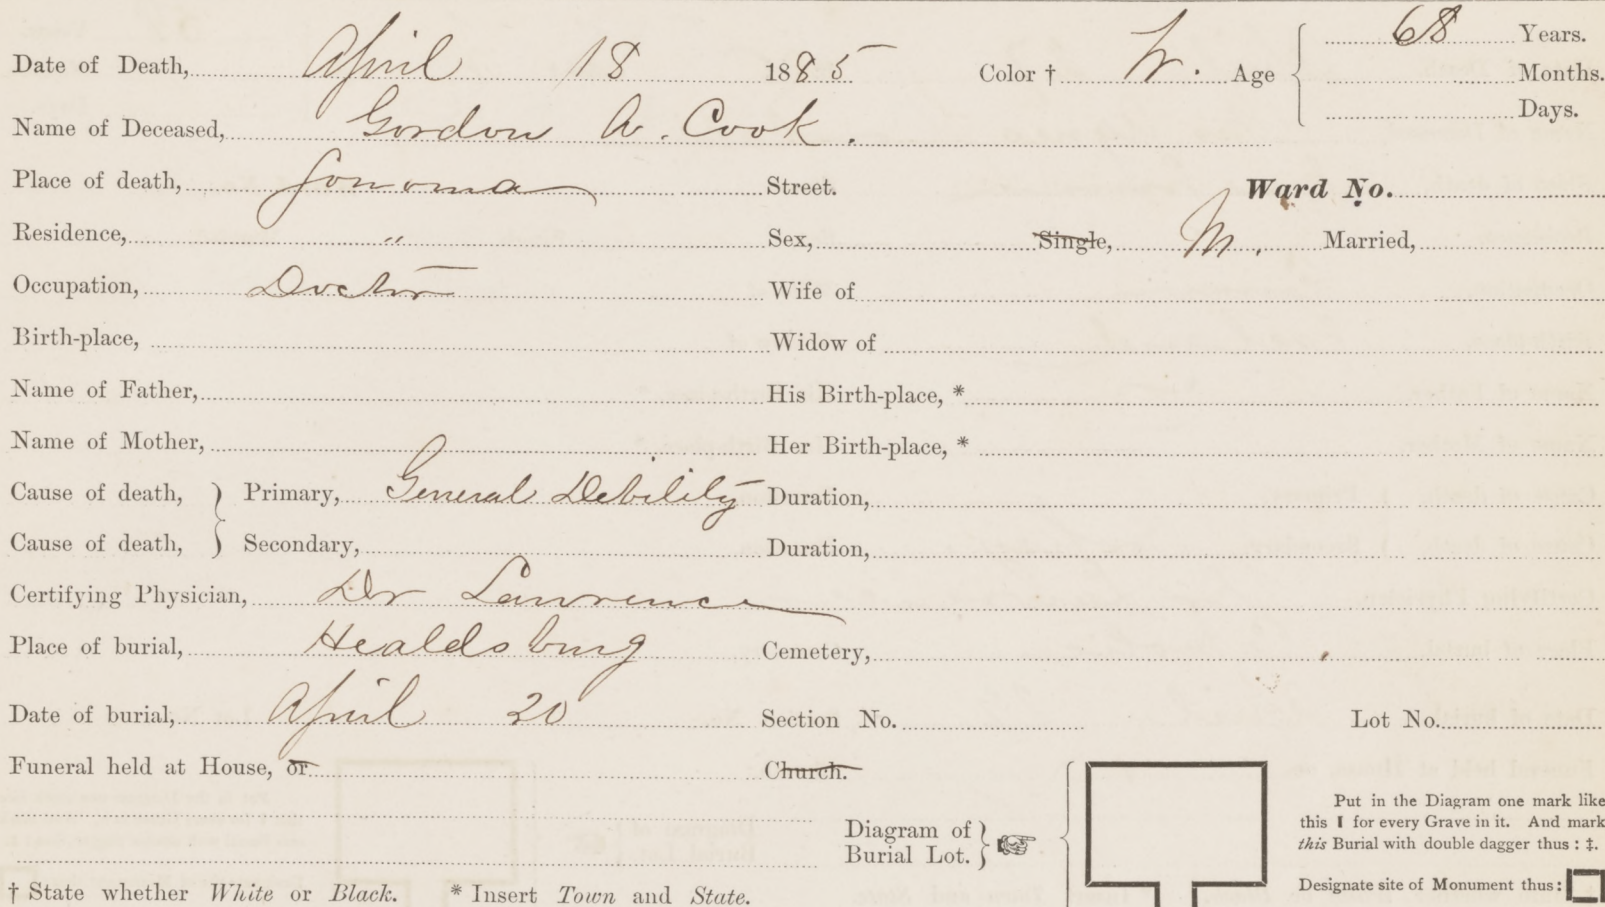 Date of Death, April 18 1885 Color † W. Age 68 Years.
Months.
Days.
Name of Deceased, Gordon A. Cook.
Place of death, Sonoma Street. Ward No.
Residence, " Sex, Single, M. Married,
Occupation, Doctor Wife of
Birth-place, Widow of
Name of Father, His Birth-place, *
Name of Mother, Her Birth-place, *
Cause of death, } Primary, General Debility Duration,
Cause of death, } Secondary, Duration,
Certifying Physician, Dr Lawrence
Place of burial, Healdsburg Cemetery,
Date of burial, April 20 Section No. Lot No.
Funeral held at House, or Church.
Diagram of
Burial Lot. } ☞
Put in the Diagram one mark like
this I for every Grave in it. And mark
this Burial with double dagger thus : ‡.
Designate site of Monument thus:
† State whether White or Black. * Insert Town and State.